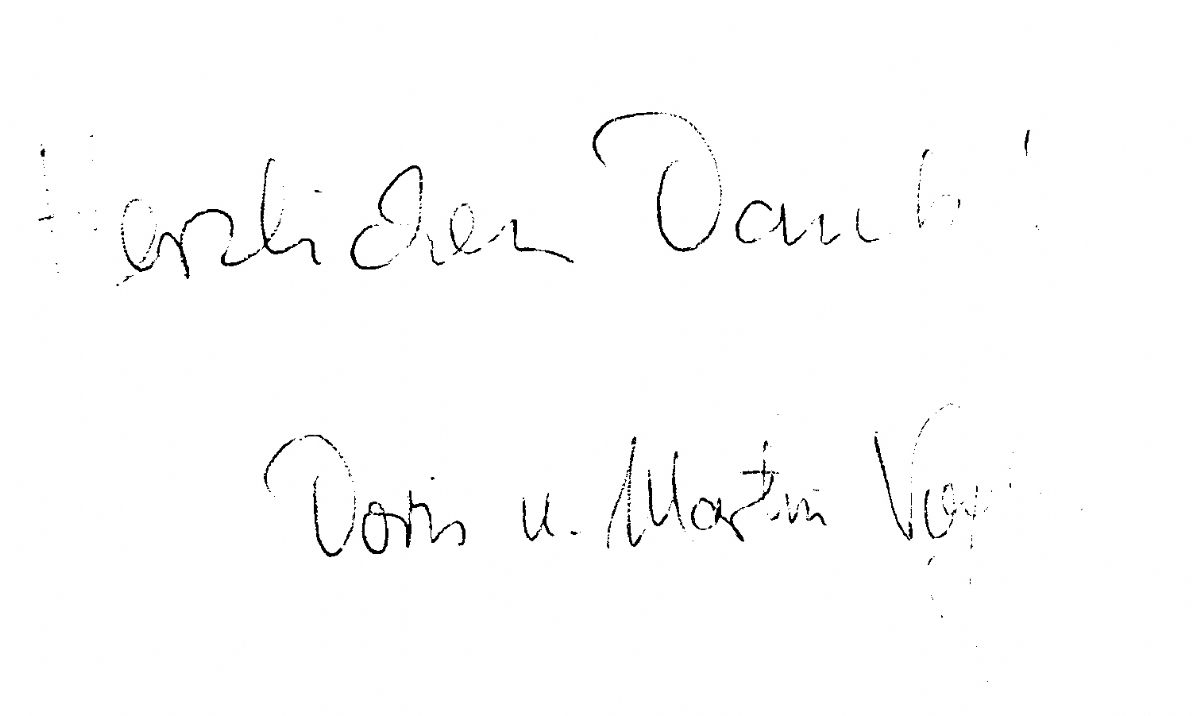 Herzlichen Dank!
Doris u. Martin